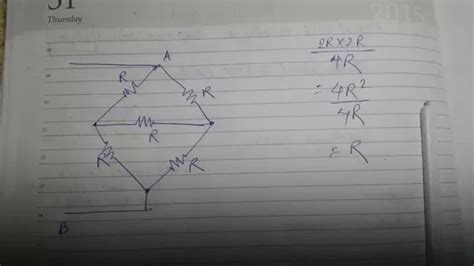 31
Thursday
2015
A
R
R
R
R
R
B
2R×2R
4R
= 4R²
4R
= R